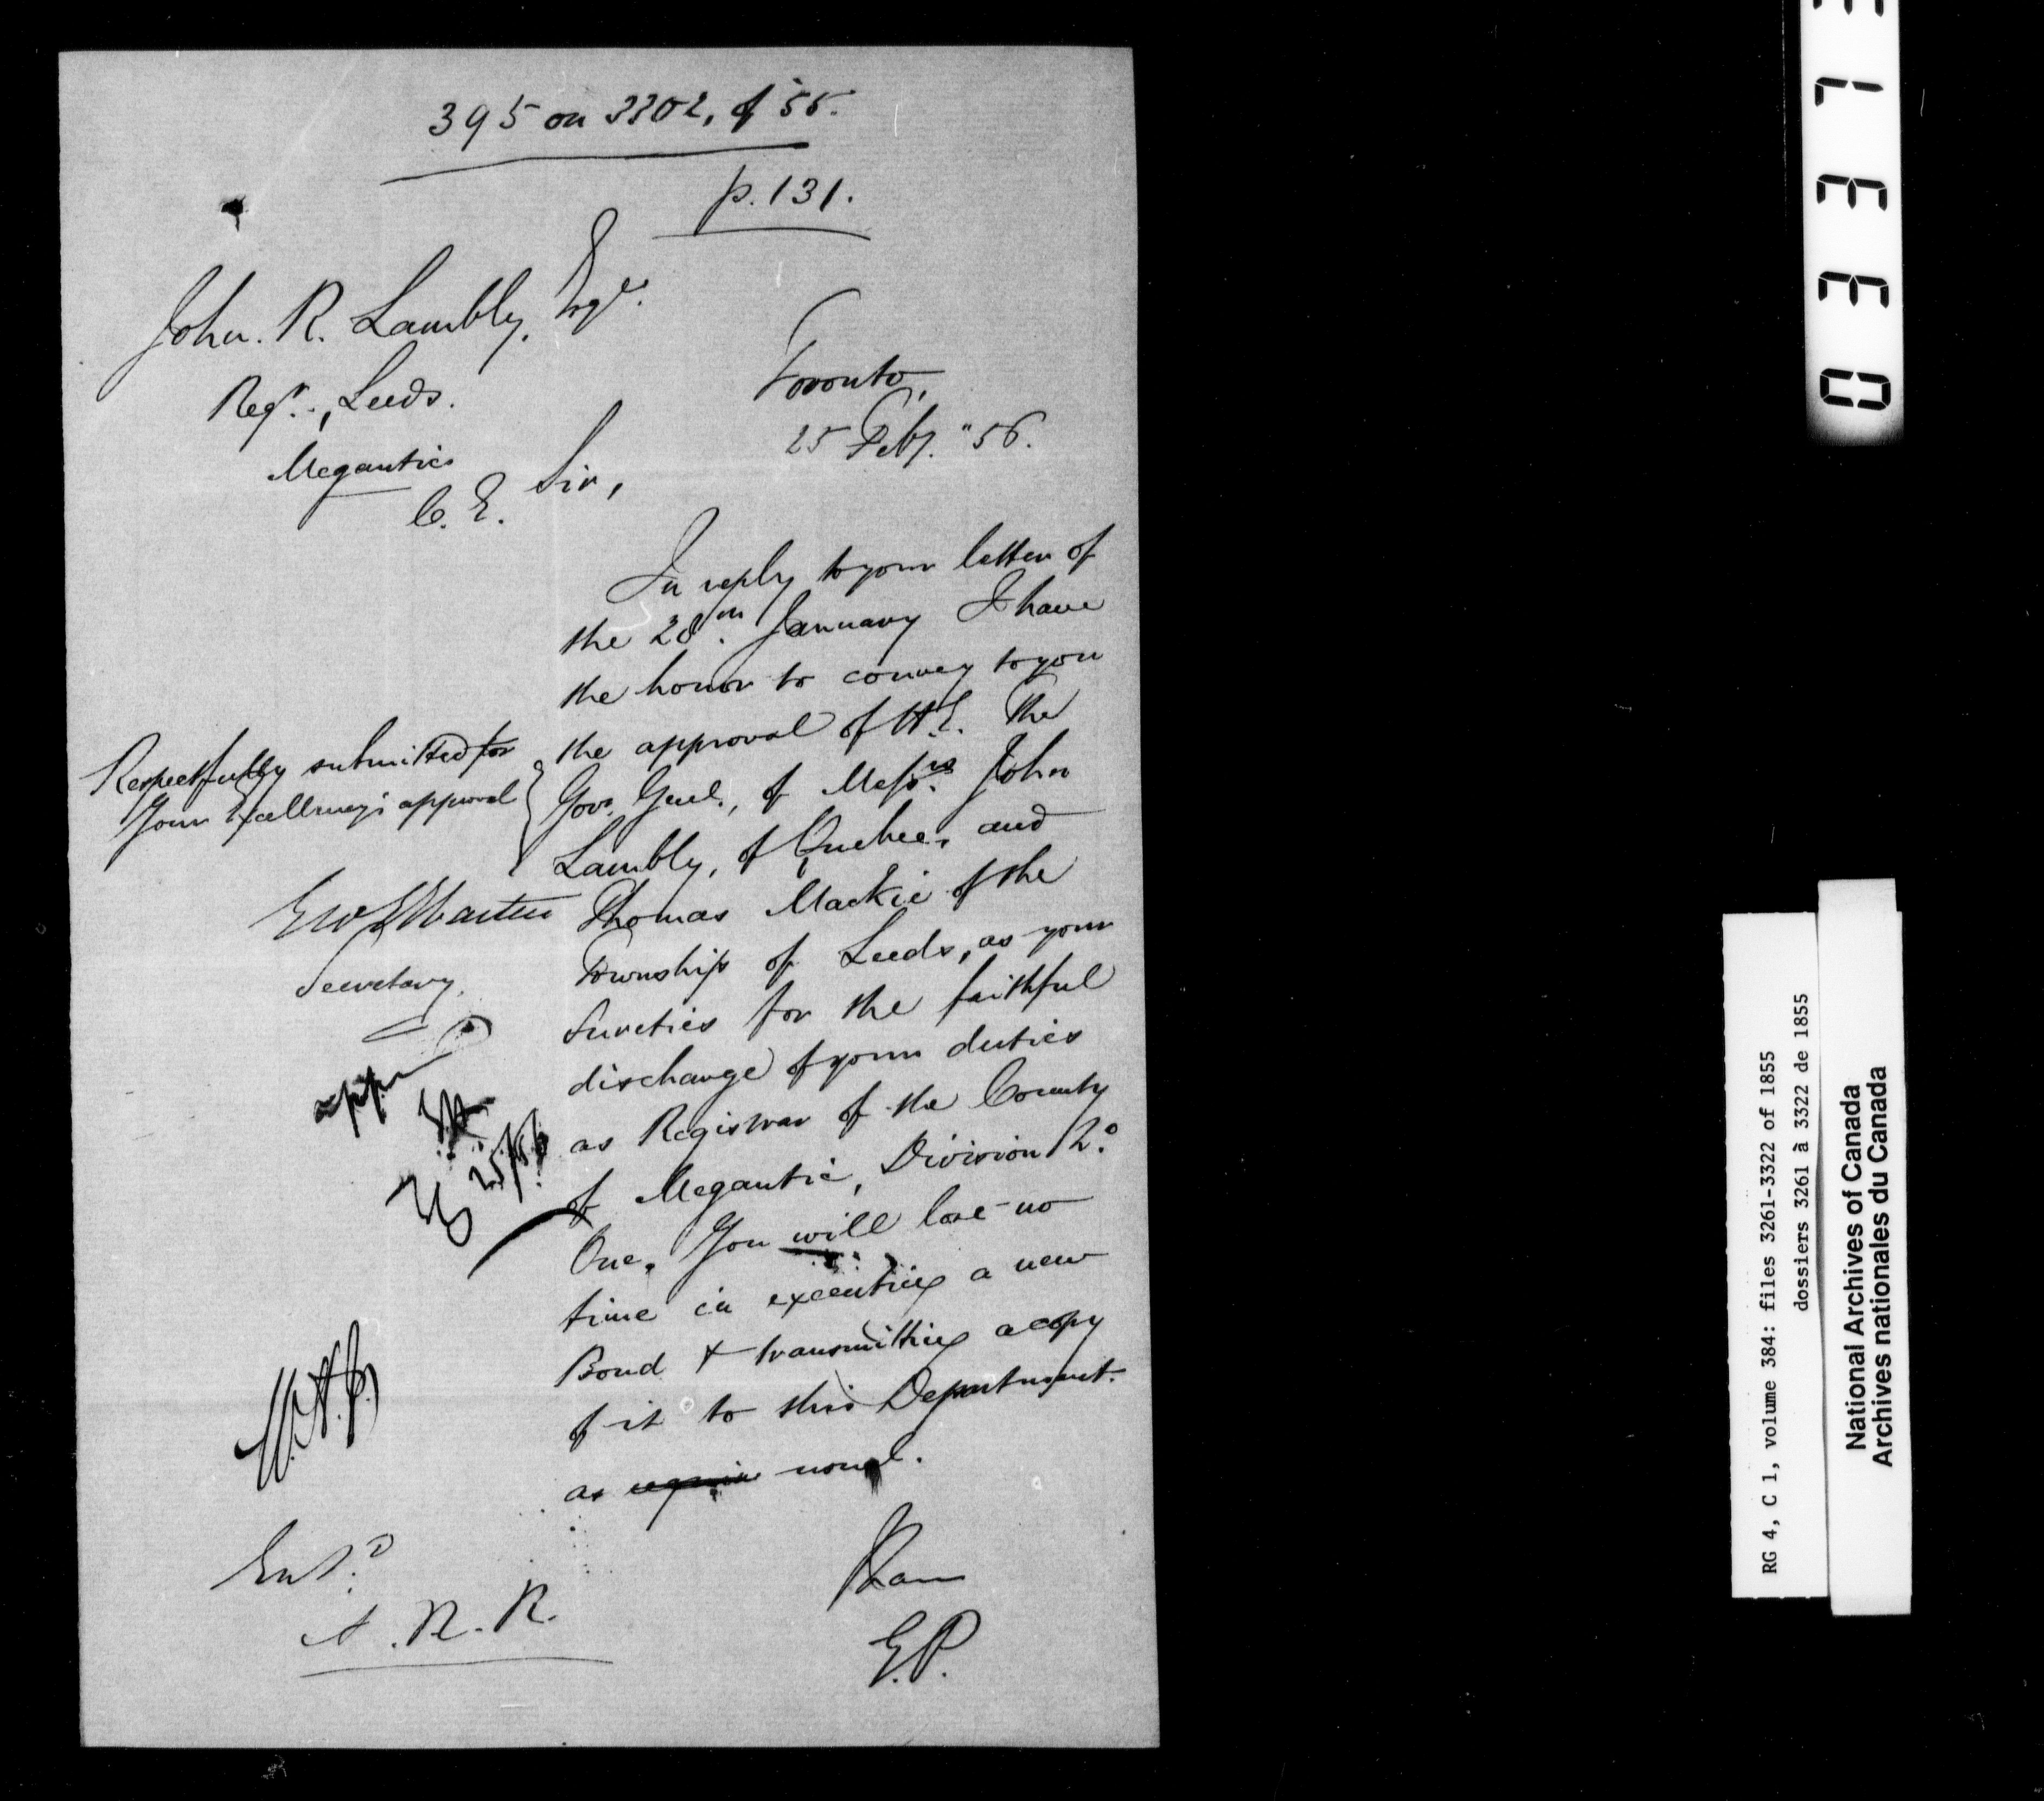 395 on 3302, of '55.
p. 131.
John. R. Lambly, Esqre.
Regr., Leeds.
Megantic
C. E.
Toronto,
25 Feby. "56.
Sir,
In reply to your letter of
the 28th. January I have
the honor to convey to you
the approval of H.E. The
Govr. Genl., of Messrs. John
Lambly, of Quebec, and
Thomas Mackie of the
Township of Leeds, as your
Sureties for the faithful
discharge of your duties
as Registrar of the County
of Megantic, Division No.
One. You will lose no
time in executing a new
Bond & transmitting a copy
of it to this Department.
as usual.
Respectfully submitted for
Your Excellency's approval
Secretary.
appr
25/56
Entd.
A. R. R.
E.P.
0337
RG 4, C 1, volume 384: files 3261-3322 of 1855
dossiers 3261 à 3322 de 1855
National Archives of Canada
Archives nationales du Canada